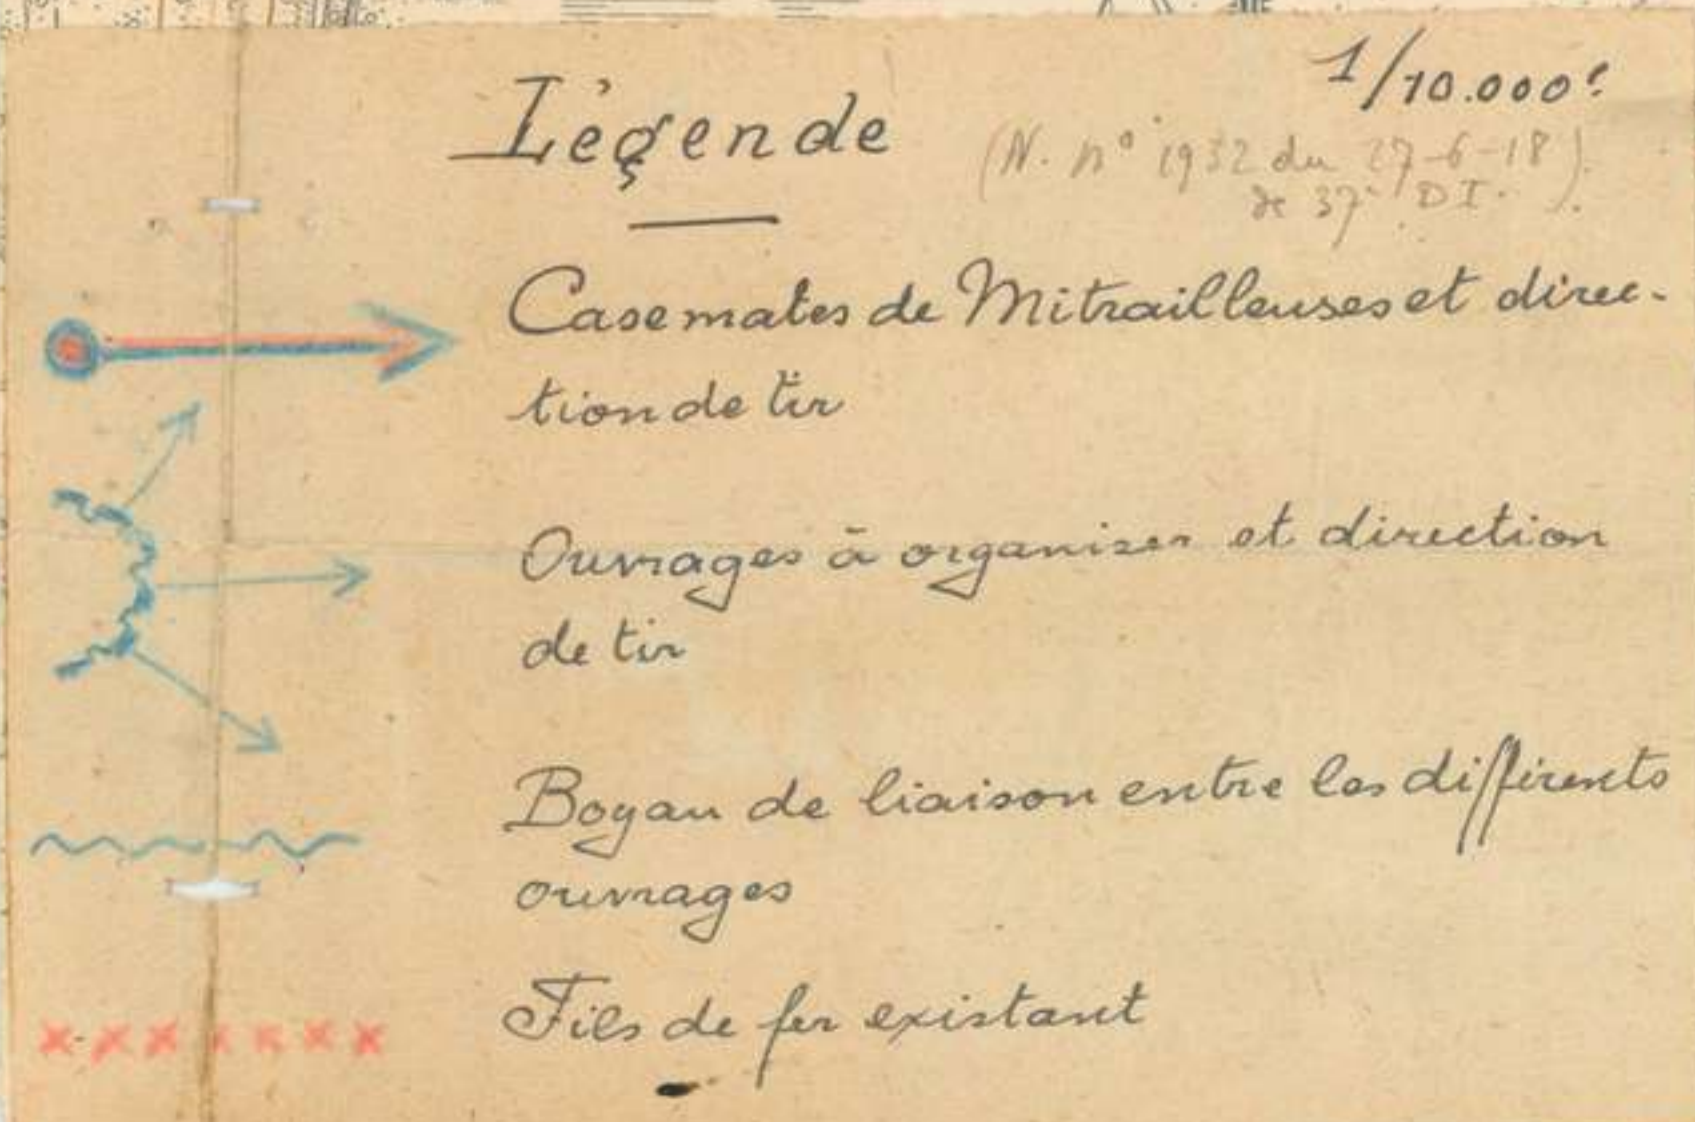 Légende
1/10.000e
(N. n° 1932 du 27-6-18)
de 37e DI.
Casemates de Mitrailleuses et direc-
tion de tir
Ouvrages à organiser et direction
de tir
Boyau de liaison entre les différents
ouvrages
Fils de fer existant